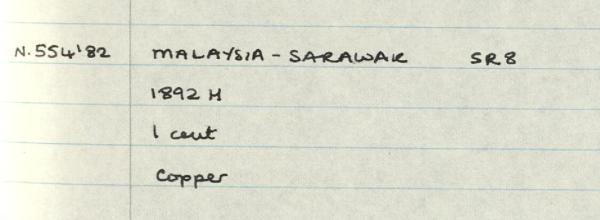 N.554'82 MALAYSIA - SARAWAK SR8
1892 H
1 cent
Copper